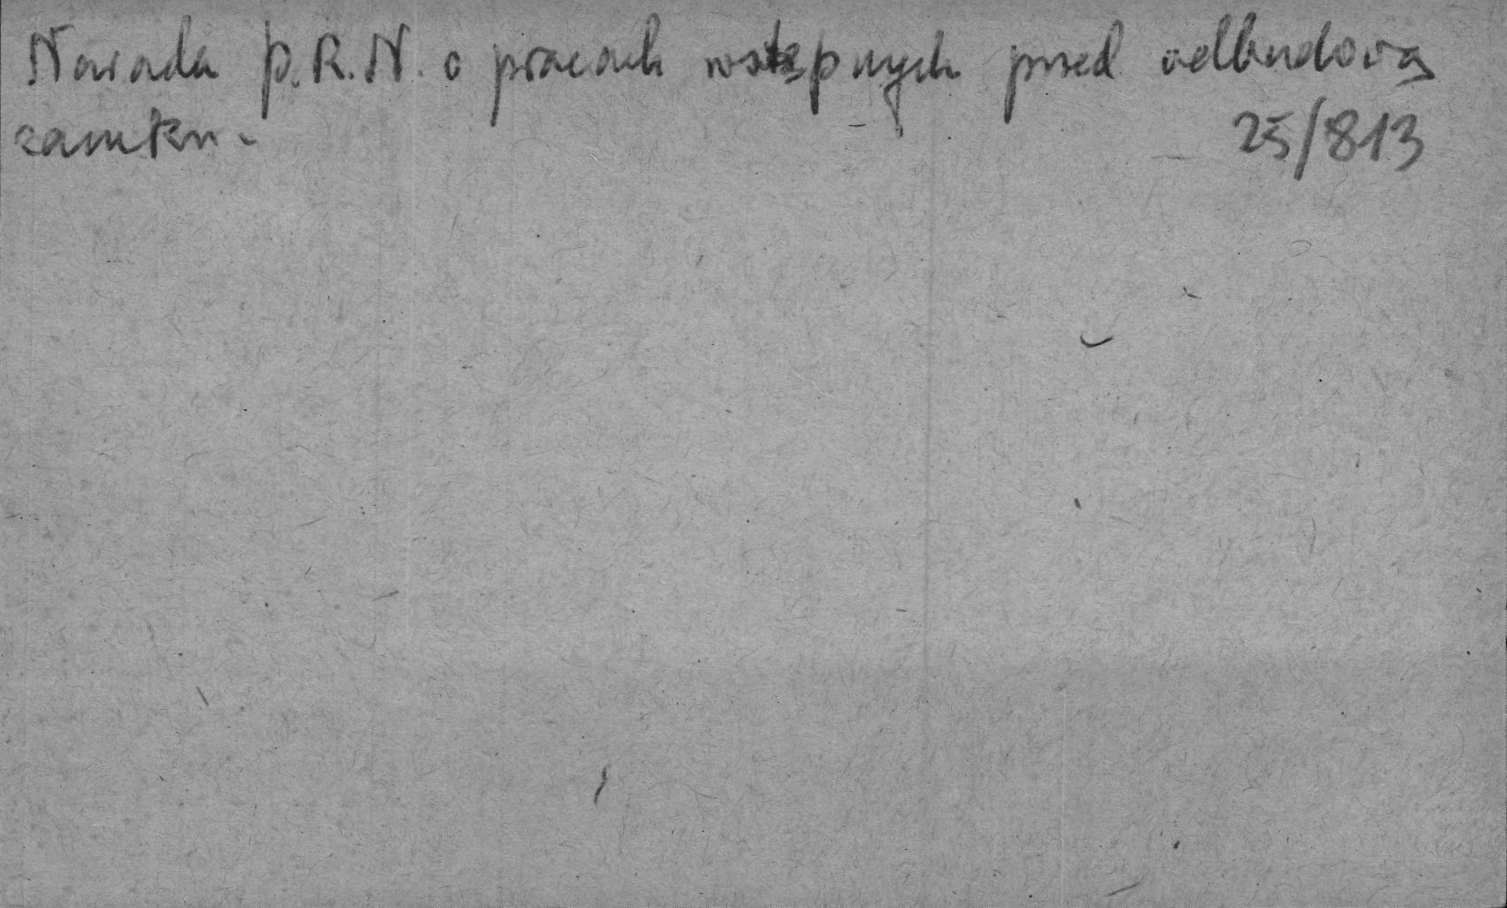 Narada P.R.N. o pracach wstępnych przed odbudową
zamku.
25/813